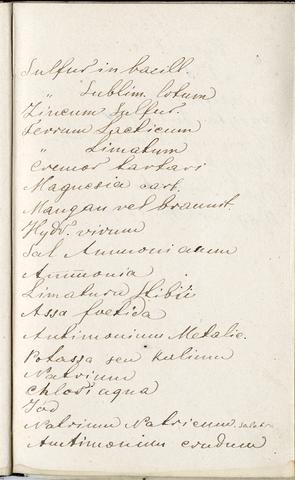 Sulfur in bacill.
" Sublim. lotum
Zincum Sulfur.
Ferrum Lacticum
" Limatum
Cremor tartari
Magnesia cart.
Mangan vel braunst.
Hydr. vivum
Sal Ammoniacum
Ammonia
Limatura Stibii
Assa foetida
Antimonium Metalic.
Potassa seu kalium
Natrium
Chlori aqua
Jod
Natrium Natricum
Antimonium crudum